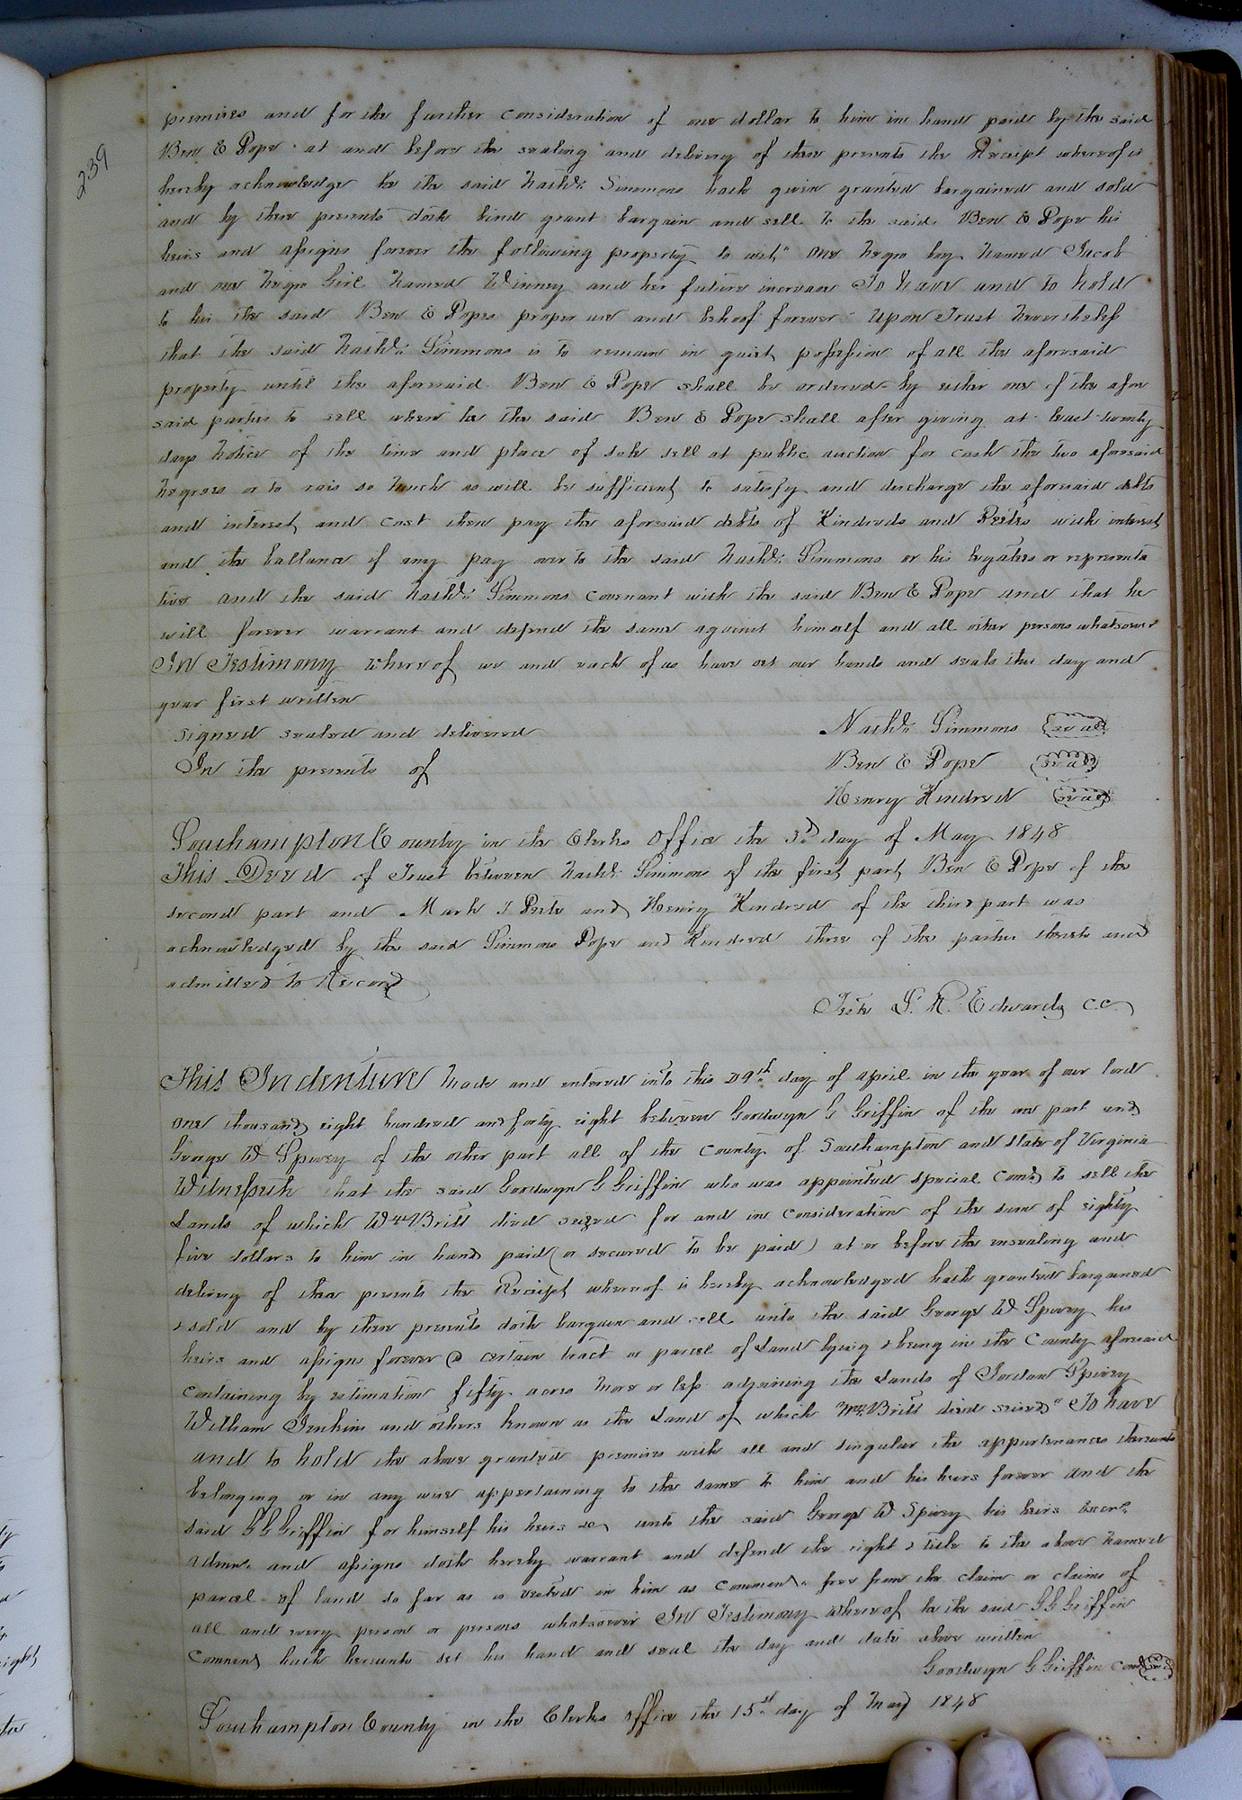 239
premises and for the further consideration of one dollar to him in hand paid by the said
Ben E Pope at and before the sealing and delivery of these presents the Receipt whereof is
hereby acknowledge he the said Nathl. Simmons hath given granted bargained and sold
and by these presents doth bind grant bargain and sell to the said Ben E Pope his
heirs and assigns forever the following property to wit" one Negro boy Named Jacob
and one Negro Girl Named Winney and her future increase To have and to hold
to his the said Ben E Popes proper use and behoof forever Upon Trust Neverthelefs
that the said Nathl. Simmons is to remain in quiet possession of all the aforesaid
property until the aforesaid Ben E Pope shall be ordered by either one of the afore
said parties to sell when he the said Ben E Pope shall after giving at least twenty
days Notice of the time and place of sale sell at public auction for cash the two aforesaid
Negroes or to rais so Much as will be sufficient to satisfy and discharge the aforesaid debts
and interest and cost then pay the aforesaid debts of Kindreds and Peetes with interest
and the ballance if any pay over to the said Nathl. Simmons or his legatees or representa
tives and the said Nathl. Simmons covenant with the said Ben E Pope and that he
will forever warrant and defend the same against himself and all other persons whatsoever
In Testimony whereof we and each of us have set our hands and seals this day and
year first written
signed sealed and delivered Nathl. Simmons seal
In the presents of Ben E Pope seal
Henry Kindred seal
Southampton County in the Clerks Office the 3d day of May 1848
This Deed of Trust between Nathl. Simmons of the first part Ben E Pope of the
second part and Mark J Peete and Henry Kindred of the third part was
acknowledged by the said Simmons Pope and Kindred three of the parties thereto and
admitted to Record
Teste L. R. Edwards CC
This Indenture Made and entered into this 29th day of April in the year of our lord
one thousand eight hundred and forty eight between Goodwyn G Griffin of the one part and
George W Spivey of the other part all of the County of Southampton and State of Virginia
Witnesseth that the said Goodwyn G Griffin who was appointed special Comr. to sell the
Lands of which Wm Britt died seized for and in consideration of the sum of eighty
five dollars to him in hand paid (or secured to be paid) at or before the ensealing and
delivery of these presents the Receipt whereof is hereby acknowledged hath granted bargained
& sold and by these presents doth bargain and sell unto the said George W Spivey his
heirs and assigns forever a certain tract or parcel of Land lying & being in the County aforesaid
containing by estimation fifty acres More or lefs adjoining the Lands of Jordan Spivey
William Jenkins and others known as the Land of which Wm. Britt died seized" To have
and to hold the above granted premises with all and singular the appurtenances thereunto
belonging or in any wise appertaining to the same to him and his heirs forever And the
said G G Griffin for himself his heirs &c unto the said George W Spivey his heirs Exors.
admrs. and assigns doth hereby warrant and defend the right & title to the above Named
parcel of land so far as is vested in him as Commr. free from the claim or claims of
all and every person or persons whatsoever In Testimony whereof he the said G G Griffin
Commr hath hereunto set his hand and seal the day and date above written
Goodwyn G Griffin com seal
Southampton County in the Clerks office the 15th day of May 1848